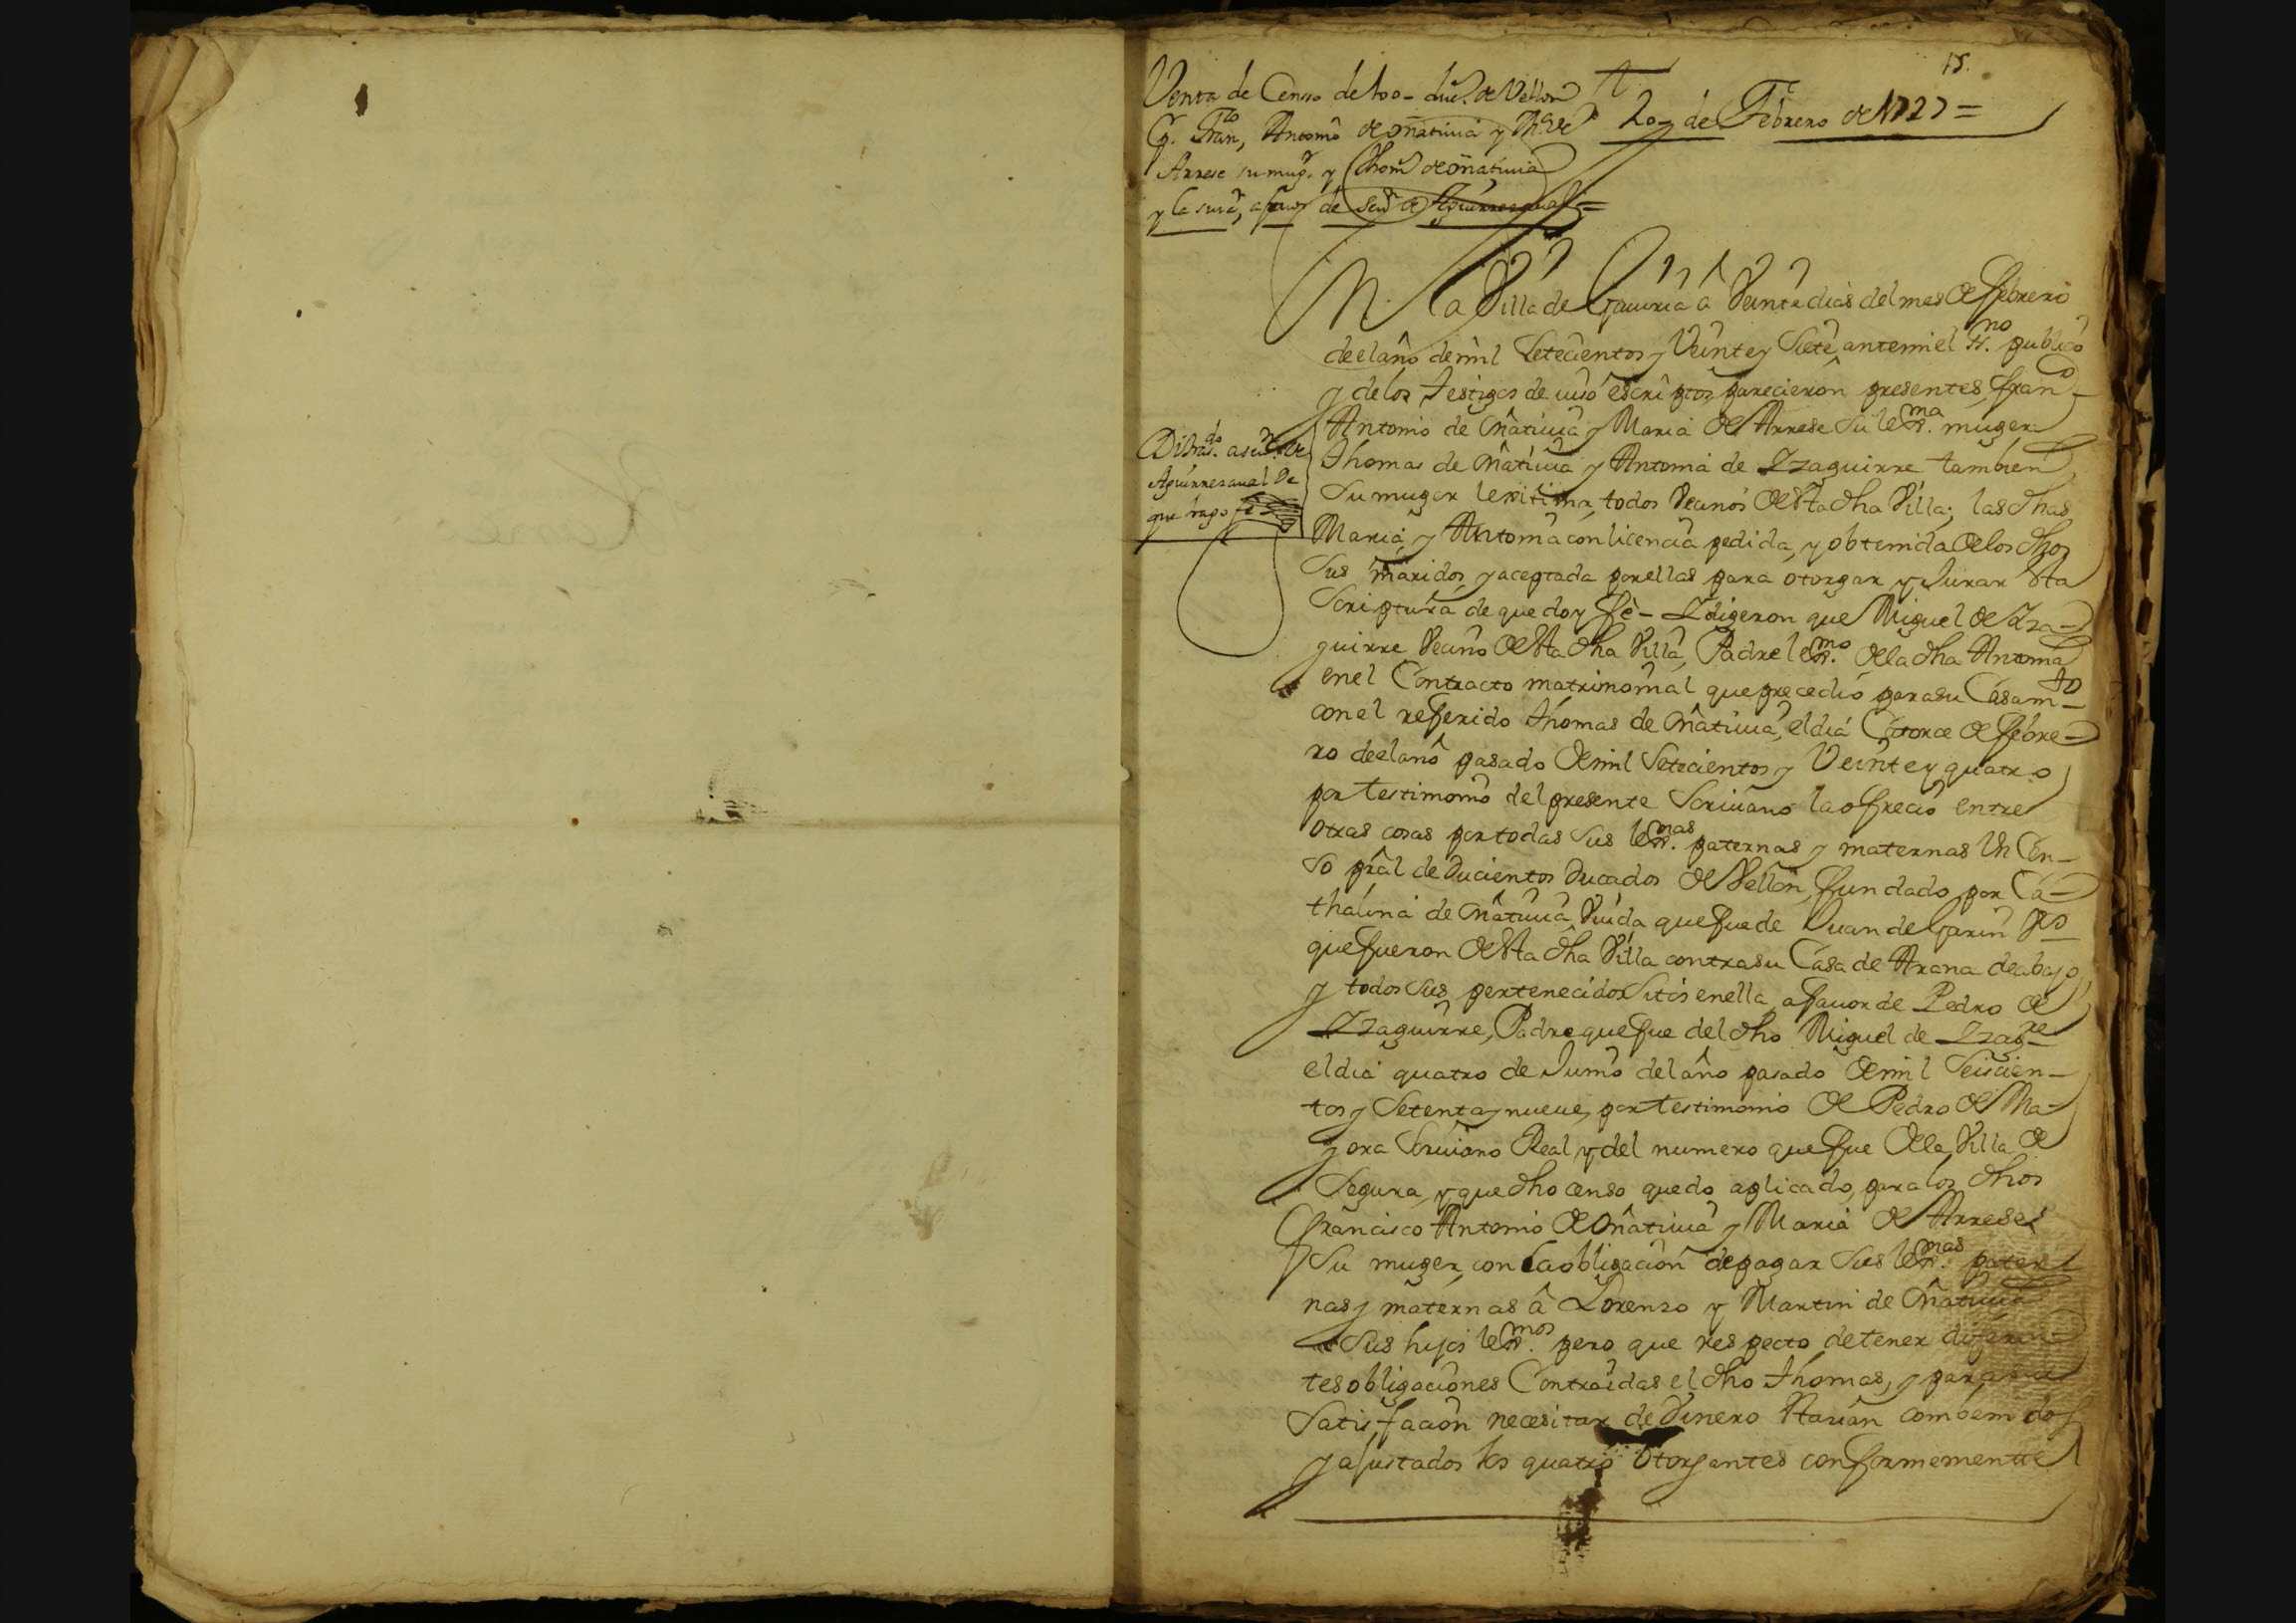 15.
Venta de Censso de 100 - duc.s de Vellon
Por Fran.co Antonio de oñativia y M.a de
Arrese su mug.r y Thom.s de oñativia
y la suia, a favor de Seu.n de Aguirrezaual =
20 de Febrero de 1727 =
En la Villa de Gauiria â Veinte dias del mes de febrero
de el año de mil Setecientos y Veinte y Siete ante mi el ss.no publico
y de los testigos de iuso escriptos parecieron presentes fran.co
Antonio de oñativia y Maria de Arrese Su lex.ma muger
Thomas de oñativia y Antonia de Yzaguirre tambien
Su muger lexitima, todos Vecinos de esta dha Villa; las dhas
Maria, y Antonia con licencia pedida, y obtenida de los dhos
Sus maridos, y aceptada por ellas para otorgar y Jurar esta
Scriptura de que doy fè - Y digeron que Miguel de Yza-
guirre Vecino de esta dha Villa, Padre lex.mo de la dha Antonia
en el Contracto matrimonial que precedio para su Casam.to
con el referido thomas de oñativia, el dia Catorce de febre-
ro de el año pasado de mil Setecientos y Veinte y quatro
por testimonio del presente Scriuano la ofrecio entre
otras cosas por todas Sus lex.mas paternas y maternas Un Cen-
so pral de Ducientos Ducados de Vellon, fundado por Ca-
thalina de oñativia Viuda que fue de Juan de Garin vs.os
que fueron de esta dha Villa contra su Casa de Arana de abajo
y todos Sus pertenecidos Sitos en ella, a fauor de Pedro de
Yzaguirre, Padre que fue del dho Miguel de Yzag.re
el dia quatro de Junio del año pasado de mil Seiscien-
tos y Setenta y nueue, por testimonio de Pedro de Ma-
yora Scriuano Real y del numero que fue de la Villa de
Segura, y que dho censo quedo aplicado, para los dhos
francisco Antonio de oñativia y Maria de Arrese
Su muger, con la obligacion de pagar Sus lex.mas pater
nas y maternas â Lorenzo y Martin de oñativia
Sus hijos lex.mos pero que respecto de tener diferen-
tes obligaciones Contraidas el dho thomas, y para su
Satisfacion necesitar de Dinero estauan combenidos
y ajustados los quatro Otorgantes conformemente
Di tras.do a Seu.n de
Aguirrezaual de
que hago fe